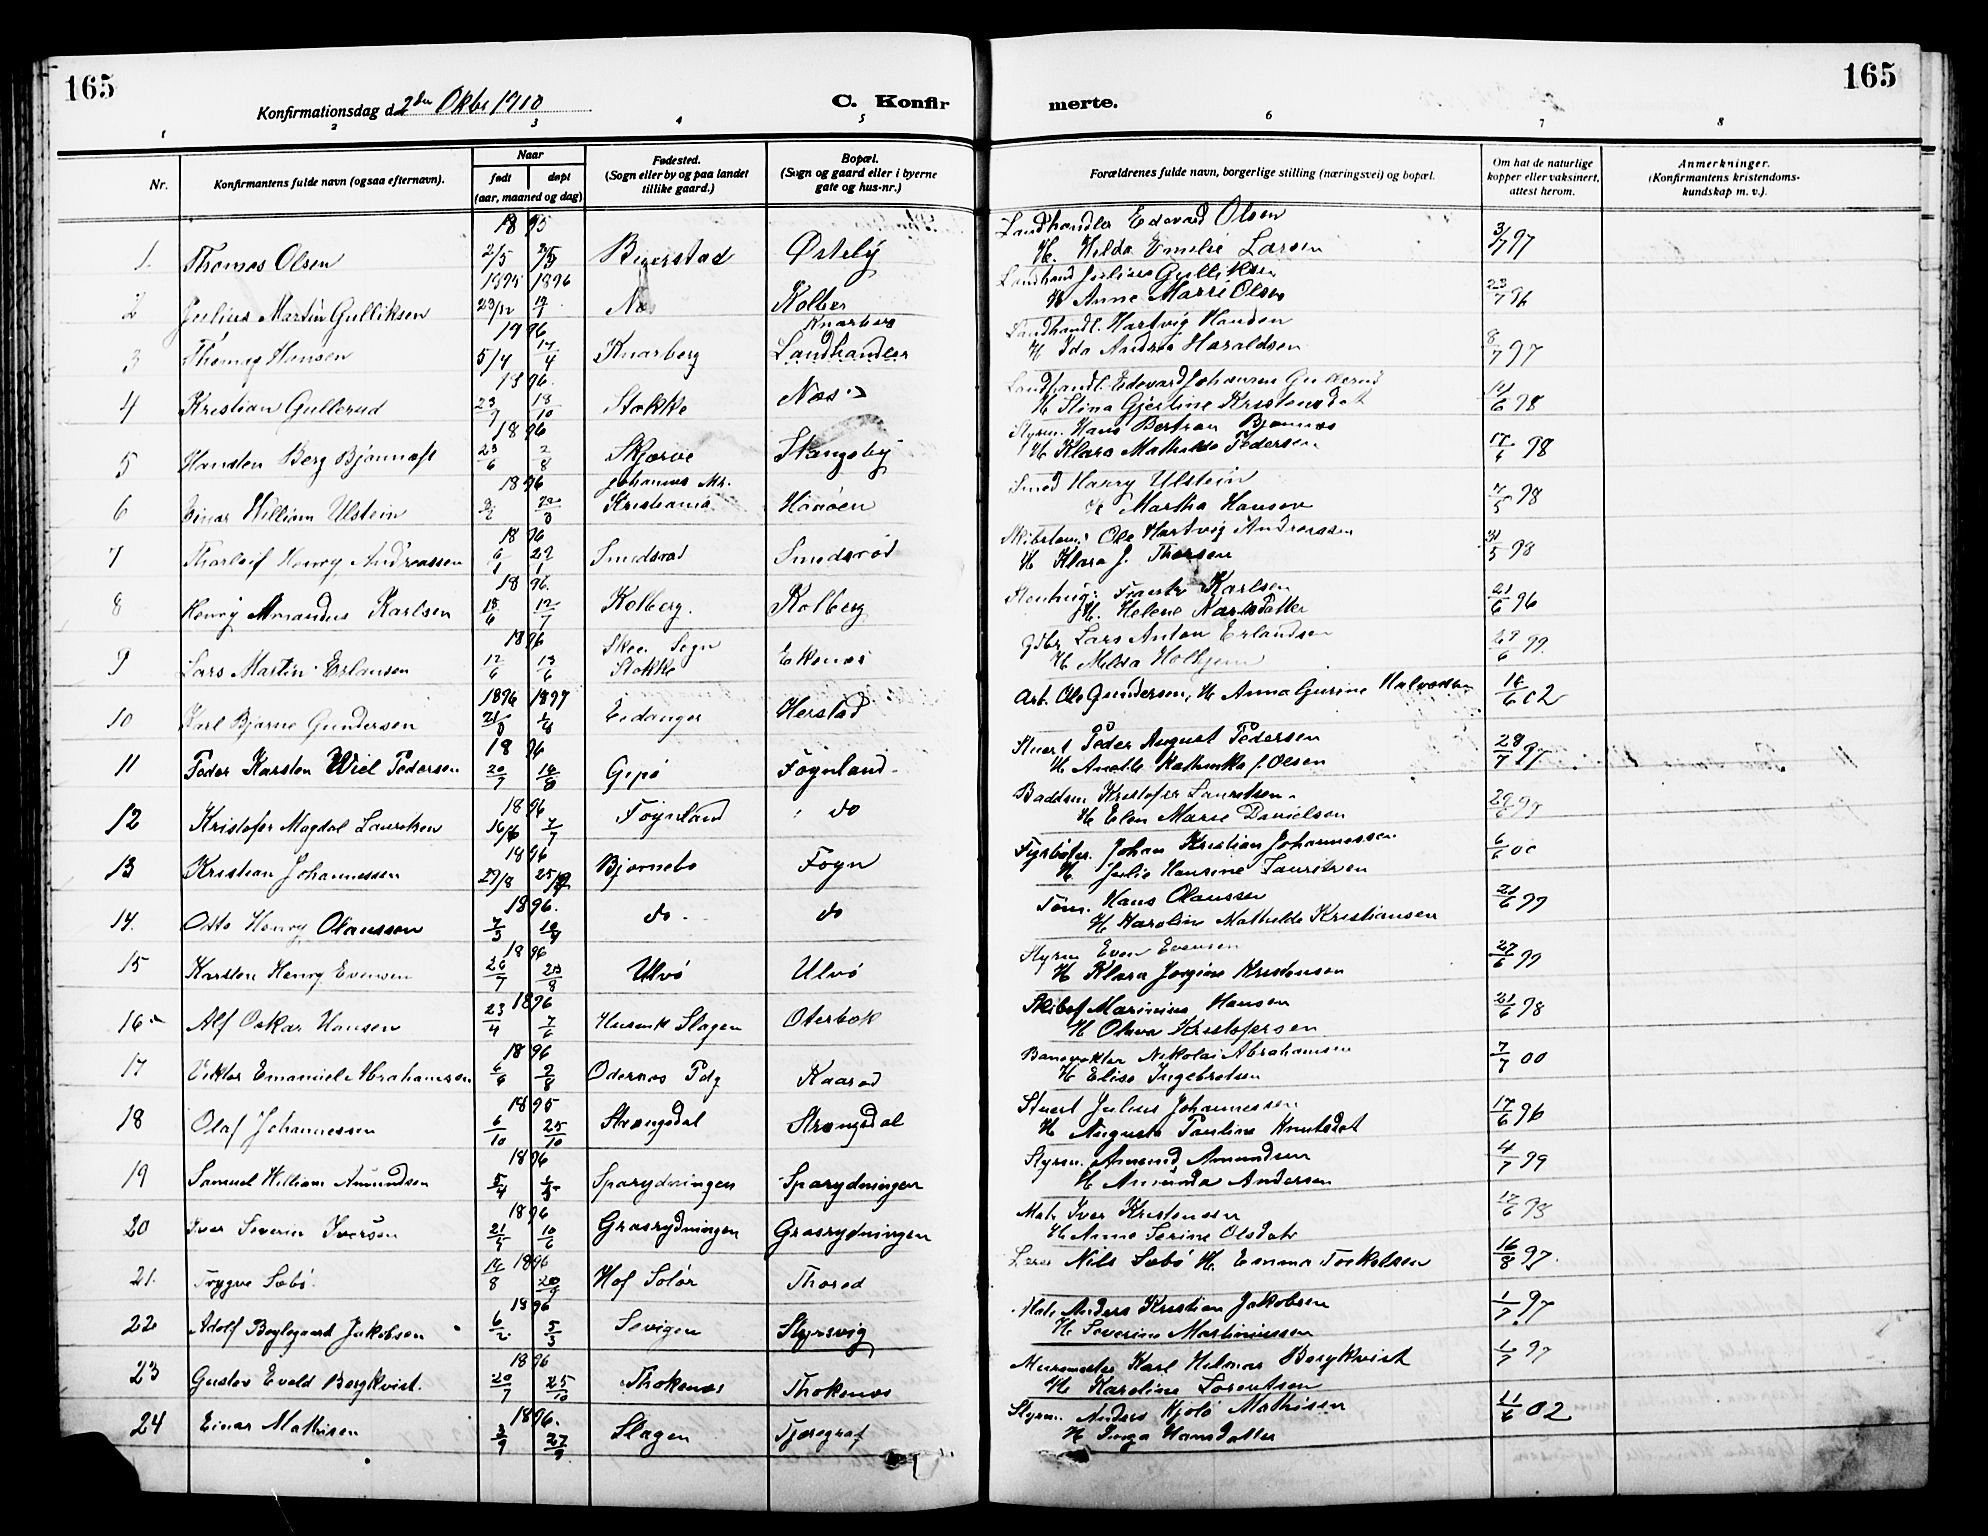 165
165
Konfirmationsdag d. 2den Oktbr 1910
C. Konfir
merte.
1 2 3 4 5 6 7 8
Nr.
Konfirmantens fulde navn (ogsaa efternavn).
Naar
født
døpt
(aar, maaned og dag)
Fødested.
(Sogn eller by og paa landet
tillike gaard.)
Bopæl.
(Sogn og gaard eller i byerne
gate og hus-nr.)
Forældrenes fulde navn, borgerlige stilling (næringsvei) og bopæl.
Om hat de naturlige
kopper eller vaksinert,
attest herom.
Anmerkninger.
(Konfirmantens kristendoms-
kundskap m. v.).
1895
Landhandler Edevard Olsen
1. Thomas Olsen 2/5 Østeby H. Hilda Emelie Larsen 3/7 97
1895 1896
Landhand Julius Gulliksen
2 Julius Martin Gulliksen 23/12 Kolber H Anne Marie Olsen 23/7 96
1996 Knarberg
Landhandl. Hartvig Hansen
3 Thomas Hansen 5/4 17/4 Knarberg Landhandler H Ida Andrea Haraldsen 8/7 97
1896.
Landhandl. Edevard Johansen Gullerud
4 Kristian Gullerud 23/9 18/10 Stokke Næs H Stina Gjertine Kristensdat 14/6 98
1896
Styrm. Hans Bertran Bjønnæs
5 Berg 23/6 2/8 Skjærve Stangeby H Klara Mathilde Pedersen 98
1896 Johannes Mr.
Smed Harry Ulstein
6 Einar William Ulstein Kristiania Haaøen H Martha Hansen 7/5 98
1896
Ole Hartvig Andreassen
7 Tharleif Henry Andreassen 6/1 Smedsrød Smedsrød H Klara J. Thorsen 31/5 98
1896.
Stenhug: Frantz Karlsen
8 Henry Amandus Karlsen 18/6 12/7 Kolberg. Kolberg H. Helene Karlsdatter 21/6 96
1896 Skee Sogn
Gdbr Lars Anton Erlandsen
9 Lars Martin Erlansen 12/6 Stokke Ekenæs H 99
1896 1897
10 Karl Bjarne Gundersen Eidanger Herstad Arb. Ole Gundersen, H Anna Gurine Halvorsen 18/6 02
1896
Stuert Peder August Pedersen
11 Peder Karsten Wiel Pedersen 20/7 16/8 Gipø Føynland. H Anette Kathinka f. Olsen 28/7 97
1896
Baadsm Kristofer Lauritsen.
12 Kristofer Magdal Lauritzen 16/6 7/7 Føynland do H Elen Marie Danielsen 99
1896
Fyrbøter. Johan Kristian Johannessen
13 Kristian Johannessen 29/8 Bjørnebo Føyn H Julie Hansine Lauritzen 6/6 00
1896.
Tøm. Hans Olaussen
14. Otto Henry Olaussen 7/3 do do H Karolin Mathilde Kristiansen 21/6 99
1896
Styrm Even Evensen
15 Karsten Henry Evensen 26/7 23/8 Ulvø Ulvø H Klara Jørgine Kristensen 27/6 99
1896
Skibsf Marinius Hansen
16 Alf Oskar Hansen 23/4 7/6 Husvik Slagen Oterbæk H Oleva Kristofersen 21/6 98
1896
Banevokter Nikolai Abrahamsen
17 Viktor Emanuel Abrahamsen 6/6 2/8 Odernæs Pdg Kaarød H Elise Ingebretsen 7/7 00
1895
Stuert Julius Johannessen
18 Olaf Johannessen 6/10 25/10 Strengsdal Strengsdal H Augusta Pauline Knutsdat 17/6 96
1896
Styrm. Amund Amundsen
19 Samuel William Amundsen 5/4 Sparydningen Sparydningen H Amunda Andersen 4/7 99
1896
Matr Iver Kristensen
20 Iver Severin Iversen 21/4 10/6 Græsrydningen Græsrydningen H Anne Serine Olsdatr 17/6 98
1896
21. Trygve Sæbø. 14/8 20/9 Hof Solør Thorød Lærer Nils Sæbø H. Emma Torkelsen 16/8 97.
1896
Matr Anders Kristian Jakobsen
22 Adolf Jakobsen 6/2 5/3 Sevigen Styrsvig H Severine Martiniussen 1/7 97
1896
Murmester Karl Hilmar Bergkvist
23 Gustav Evald Bergkvist. 20/7 25/10 Thokenæs Thokenæs H Karoline Lorentsen 1/7 97
1896.
Styrm. Anders Kjølø Mathisen
24 Einar Mathisen 3/9 27/9 Slagen Tjøregraf H Inga Hansdatter 21/6 02